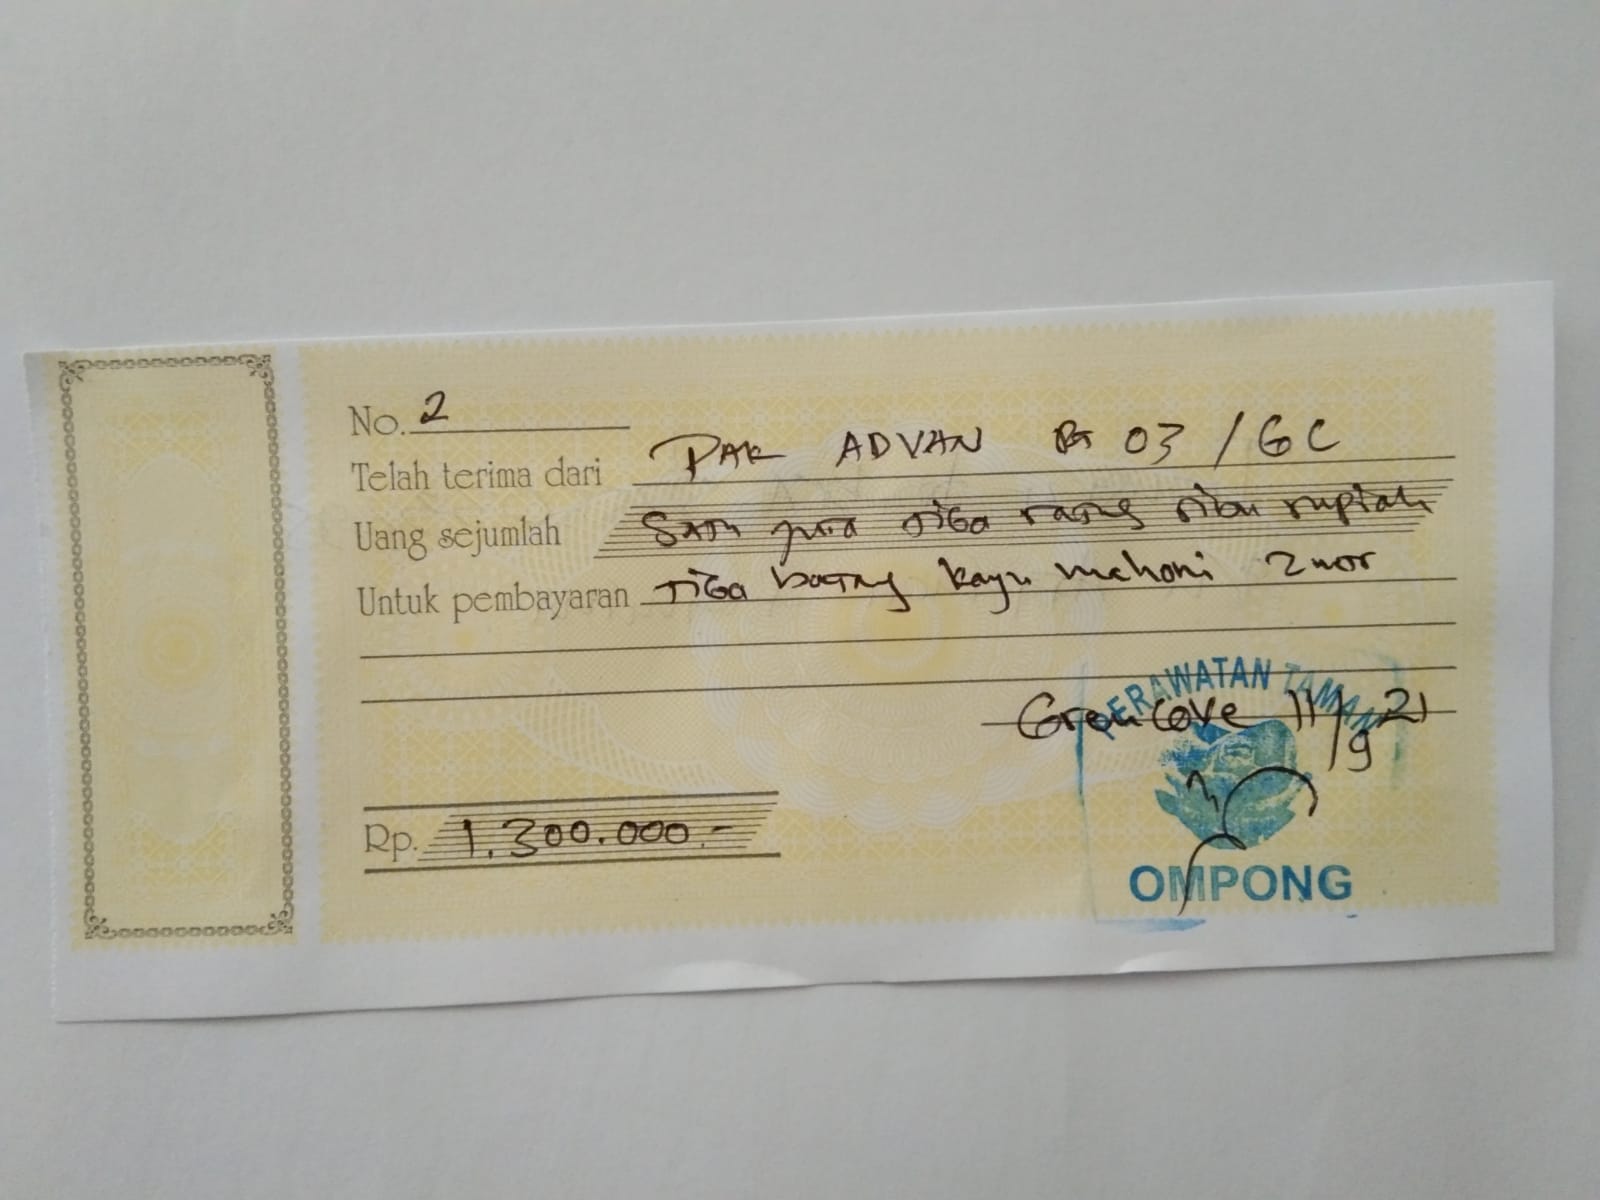 No. 2
Telah terima dari PAK ADVAN RT 03 / GC
Uang sejumlah Satu juta tiga ratus ribu rupiah
Untuk pembayaran tiga batang kayu mahoni
PERAWATAN TAMAN
Grencove 11/9 21
Rp. 1.300.000.-
OMPONG